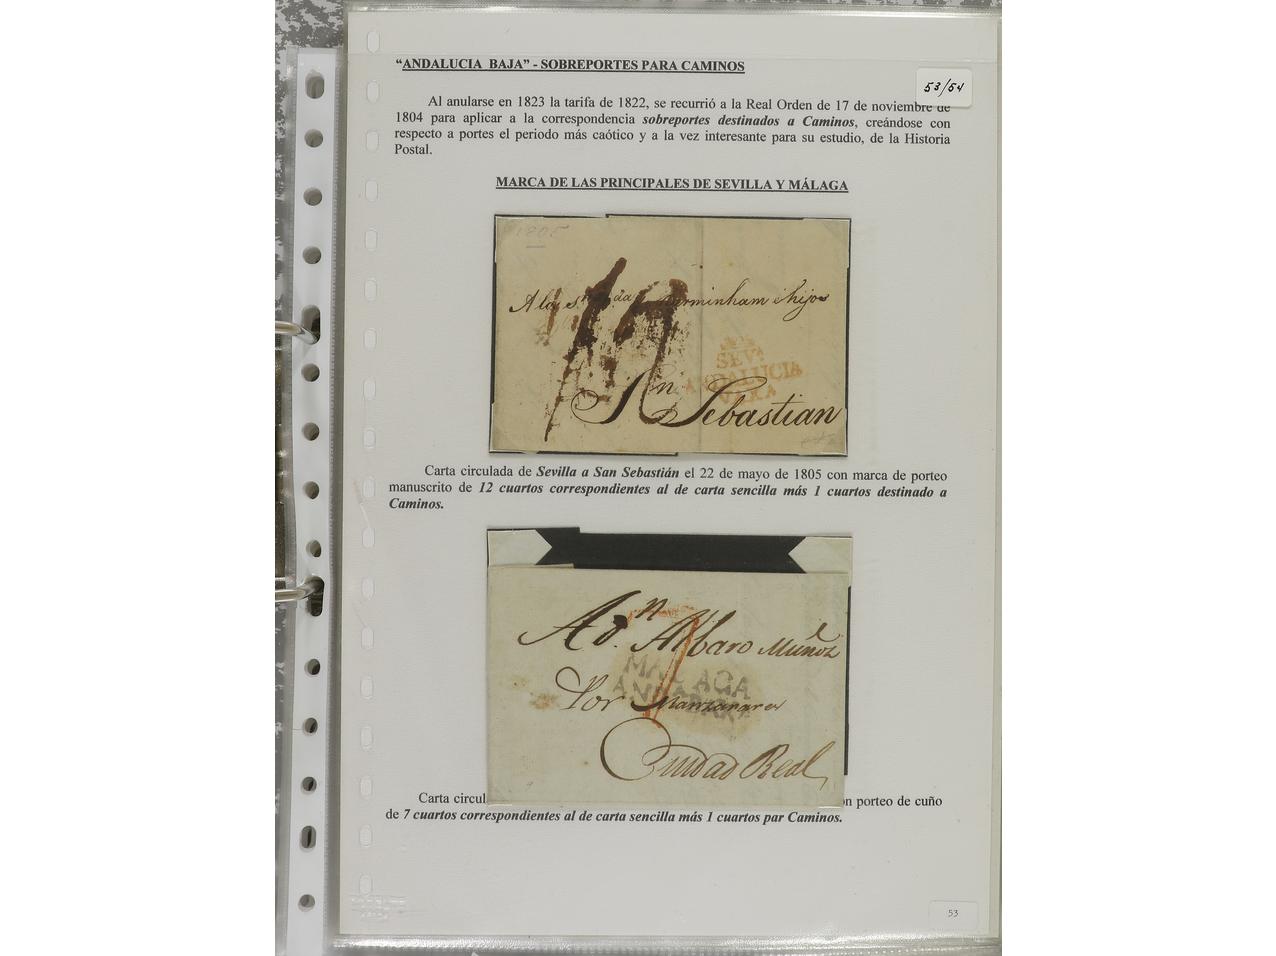 “ANDALUCIA BAJA” - SOBREPORTES PARA CAMINOS
53/54
Al anularse en 1823 la tarifa de 1822, se recurrió a la Real Orden de 17 de noviembre de
1804 para aplicar a la correspondencia sobreportes destinados a Caminos, creándose con
respecto a portes el periodo más caótico y a la vez interesante para su estudio, de la Historia
Postal.
MARCA DE LAS PRINCIPALES DE SEVILLA Y MÁLAGA
1805
A los Birminham é hijos
SEVA
ANDALUCIA
VAXA
Sn Sebastian
Carta circulada de Sevilla a San Sebastián el 22 de mayo de 1805 con marca de porteo
manuscrito de 12 cuartos correspondientes al de carta sencilla más 1 cuartos destinado a
Caminos.
A Dn Alvaro Muñoz
MALAGA
Por Manzanares
Ciudad Real
Carta circul
on porteo de cuño
de 7 cuartos correspondientes al de carta sencilla más 1 cuartos par Caminos.
53